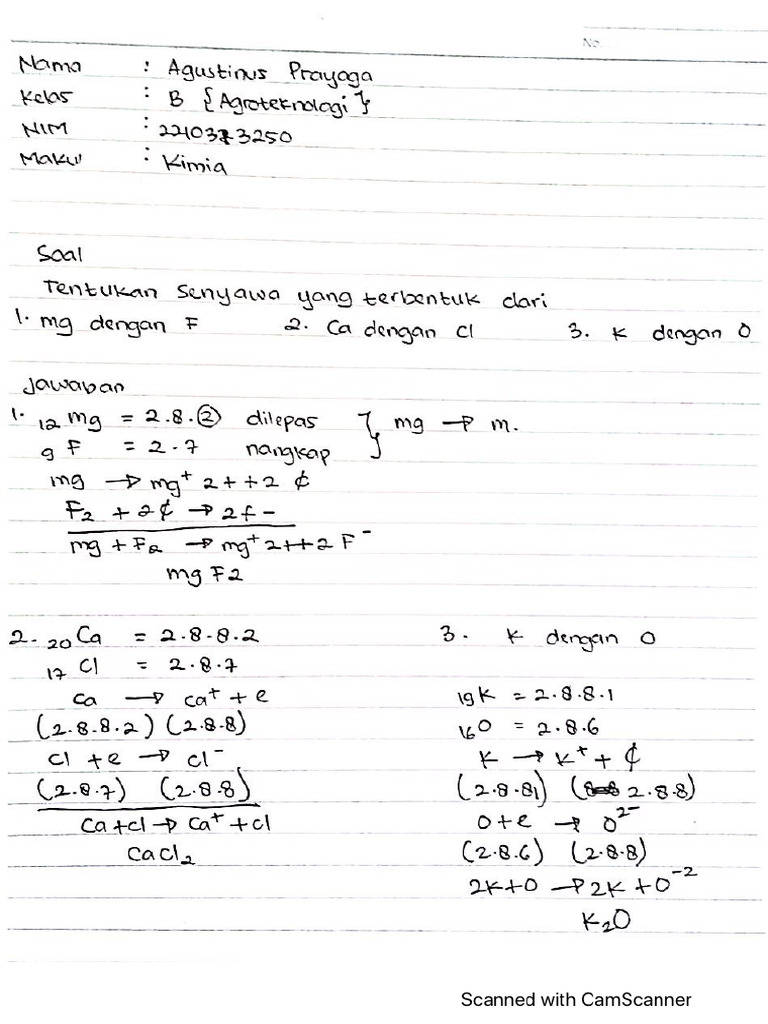 No.
Nama : Agustinus Prayoga
Kelas : B {Agroteknologi}
NIM :
Makul : Kimia
Soal
Tentukan senyawa yang terbentuk dari
1. mg dengan F 2. Ca dengan Cl 3. K dengan O
Jawaban
1. ₁₂mg = 2.8.② dilepas } mg → m.
₉F = 2.7 nangkap
mg → mg⁺ 2+ +2 e
F₂ + 2e → 2f-
mg + F₂ → mg⁺ 2++2 F⁻
mg F2
2. ₂₀Ca = 2.8.8.2
₁₇Cl = 2.8.7
Ca → Ca⁺ + e
(2.8.8.2) (2.8.8)
Cl + e → Cl⁻
(2.8.7) (2.8.8)
Ca+Cl → Ca⁺ + Cl
CaCl₂
3. K dengan O
₁₉K = 2.8.8.1
₁₆O = 2.8.6
K → K⁺ + e
(2.8.81) (2.8.8)
O+e → O²⁻
(2.8.6) (2.8.8)
2K+O → 2K + O⁻²
K₂O
Scanned with CamScanner